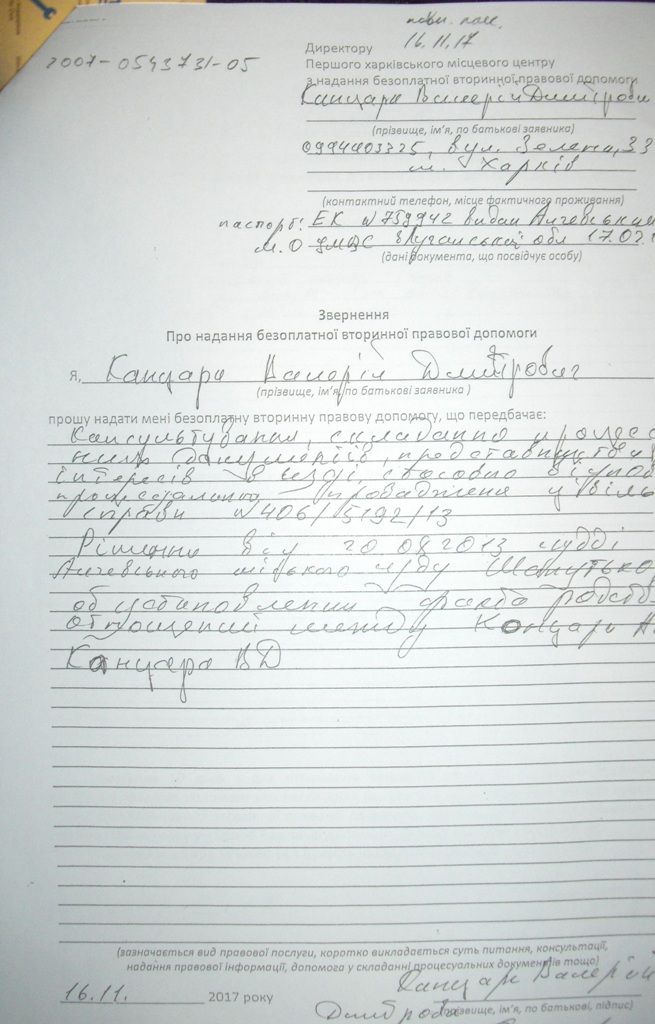 16.11.17
2007-0543731-05
Директору
Першого харківського місцевого центру
з надання безоплатної вторинної правової допомоги
Канцара Валерій Дмитрови
(прізвище, ім'я, по батькові заявника)
вул. Зелена, 33
м. Харків
(контактний телефон, місце фактичного проживання)
паспорт: ЕК №759942 видан Алчевським
М.О Луганській обл 17.02.
(дані документа, що посвідчує особу)
Звернення
Про надання безоплатної вторинної правової допомоги
я, Канцара Валерій Дмитрович
(прізвище, ім'я, по батькові заявника )
прошу надати мені безоплатну вторинну правову допомогу, що передбачає:
Консультування, складання процес
них документів, представництва
інтересів в суді, стосовно віднов
провадження у цівіль
справи №406/5192/13
Рішення від 20.08.2013 судді
Алчевського міського суду
об установлении факта родств
отношений между Концарь А.
Канцара ВД
(зазначається вид правової послуги, коротко викладається суть питання, консультації,
надання правової інформації, допомога у складанні процесуальних документів тощо)
16.11. 2017 року
Канцара Валерій
Дмитрови (прізвище, ім'я, по батькові, підпис)